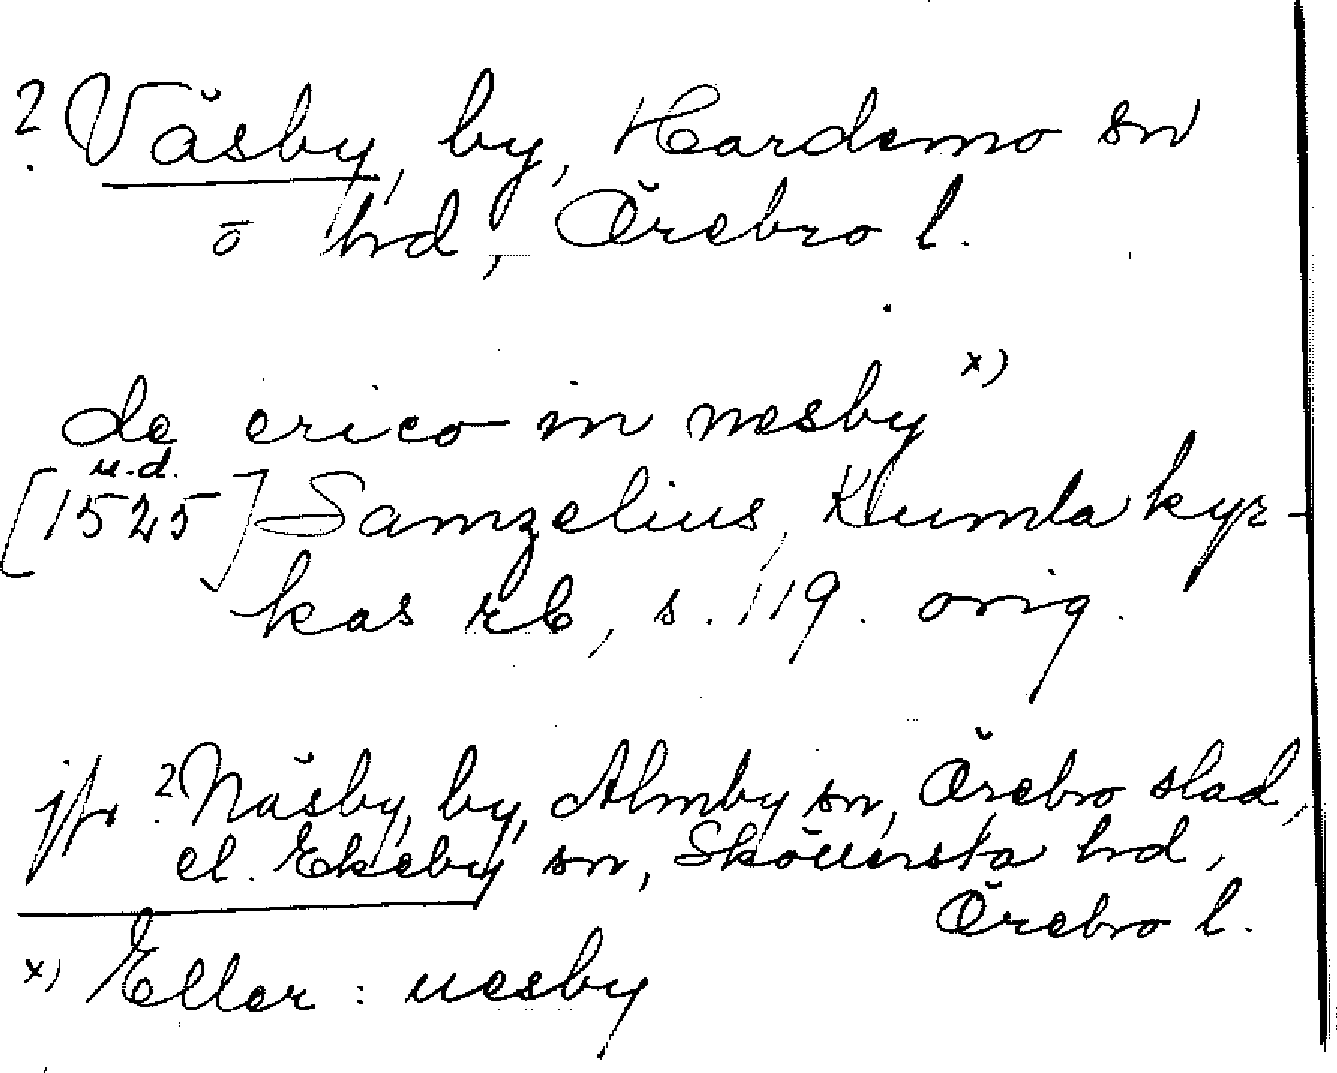 ? Väsby, by, Hardemo sn
o hd, Örebro l.
de erico in nesby x)
u.d.
[1525] Samzelius, Kumla kyr-
kas rb, s. 119. orig.
jfr ? Näsby, by, Almby sn, Örebro stad,
el. Ekeby sn, Sköllersta hd,
Örebro l.
x) Eller: uesby